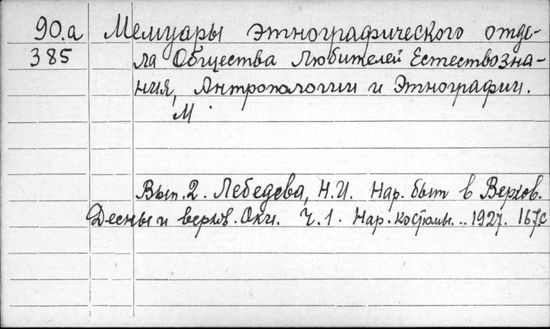 90.а Мемуары этнографического отде-
385 ла Общества Любителей Естествозна-
ния, Антропологии и Этнографии.
М
Вып. 2. Лебедева, Н.И. Нар. быт в Верхов.
Десны и верхов. Оки. Ч.1. Нар. костюмы... 1927. 167с